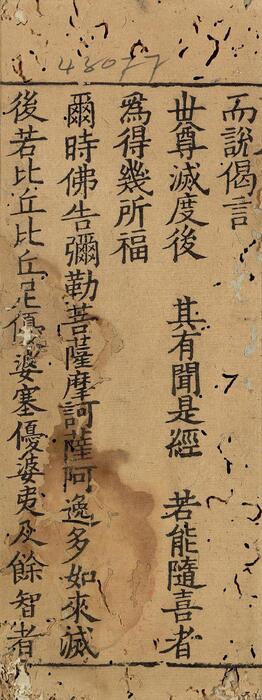 43077
而說偈言
世尊滅度後　其有聞是經　若能隨喜者
為得幾所福
爾時佛告彌勒菩薩摩訶薩阿逸多如來滅
後若比丘比丘尼優婆塞優婆夷及餘智者